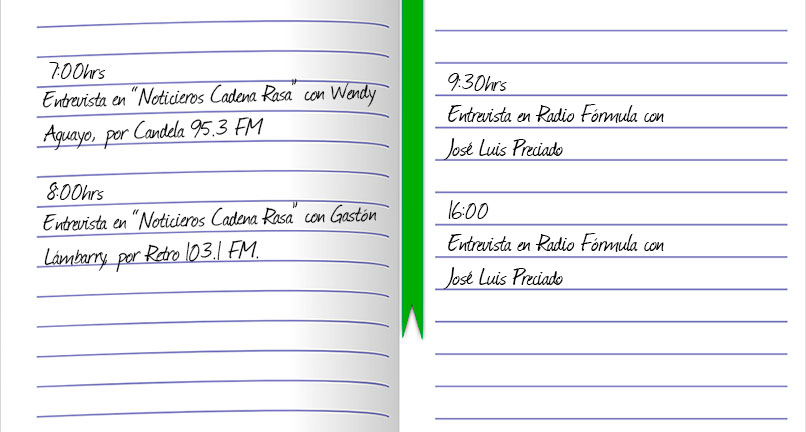 7:00hrs
Entrevista en "Noticieros Cadena Rasa" con Wendy
Aguayo, por Candela 95.3 FM
8:00hrs
Entrevista en "Noticieros Cadena Rasa" con Gastón
Lámbarry, por Retro 103.1 FM.
9:30hrs
Entrevista en Radio Fórmula con
José Luis Preciado
16:00
Entrevista en Radio Fórmula con
José Luis Preciado